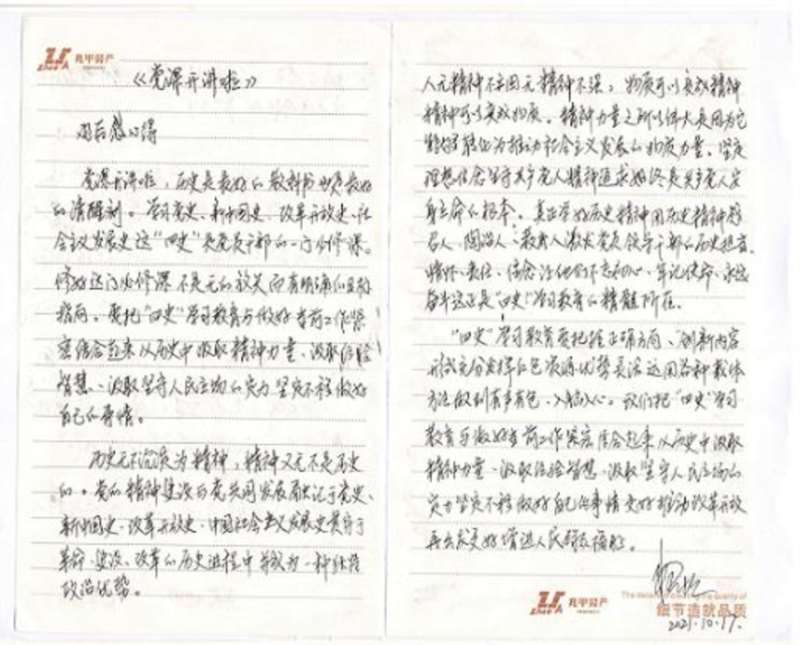 兆甲资产
《党课开讲啦》
观后感心得
党课开讲啦，历史是最好的教科书也是最好
的清醒剂。学习党史、新中国史、改革开放史、社
会主义发展史这“四史”是党员干部的一门必修课。
修好这门必修课不是无的放矢而有明确的目标
指向。要把“四史”学习教育与做好当前工作紧
密结合起来从历史中汲取精神力量、汲取经验
智慧、汲取坚守人民立场的定力坚定不移做好
自己的事情。
历史无不沉淀为精神，精神又无不是历史
的。党的精神建设的发展
新中国史、改革开放史、中国社会主义发展史贯穿于
革命、建设、改革的历史进程中并成为一种独特
政治优势。
人无精神不立国无精神不强，物质可以变成精神
精神可以变成物质。精神力量之所以伟大是因为它
能够转化为推动社会主义发展的物质力量。坚定
理想信念坚守共产党人精神追求始终是共产党人安
身立命的根本。真正学好历史精神用历史精神
人、陶冶人、教育人激发党员领导干部的历史担当
情怀、责任、信念让他们不忘初心、牢记使命、永远
奋斗这正是“四史”学习教育的精髓所在。
“四史”学习教育要把握正确方向、创新内容
形式充分发挥红色资源优势灵活运用各种载体
方法做到有声有色、入脑入心。我们把“四史”学习
教育与做好当前工作紧密结合起来从历史中汲取
精神力量、汲取经验智慧、汲取坚守人民立场的
定力坚定不移做好自己的事情更好推动改革开放
再出发更好增进人民群众福祉。
兆甲资产
细节造就品质
2021.10.17.